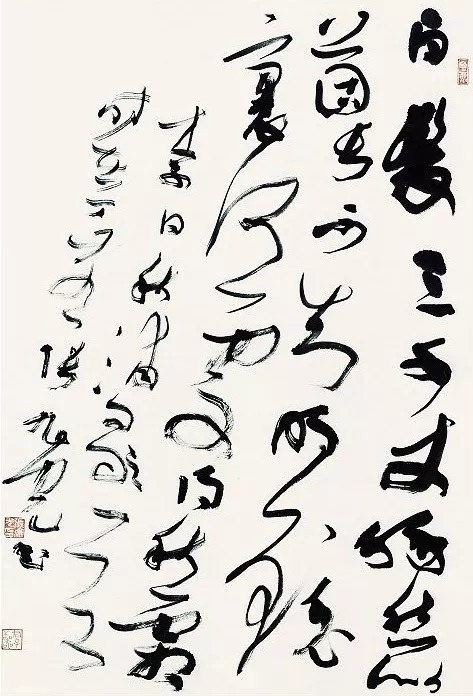 白髮三千丈緣愁似
箇長不知明鏡
裏何處得秋霜
李白秋浦歌
張旭光書